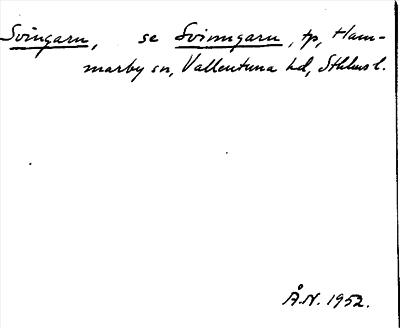 Svingarn, se Svinngarn, tp, Ham-
marby sn, Vallentuna hd, Sthlms l.
Å.N. 1952.